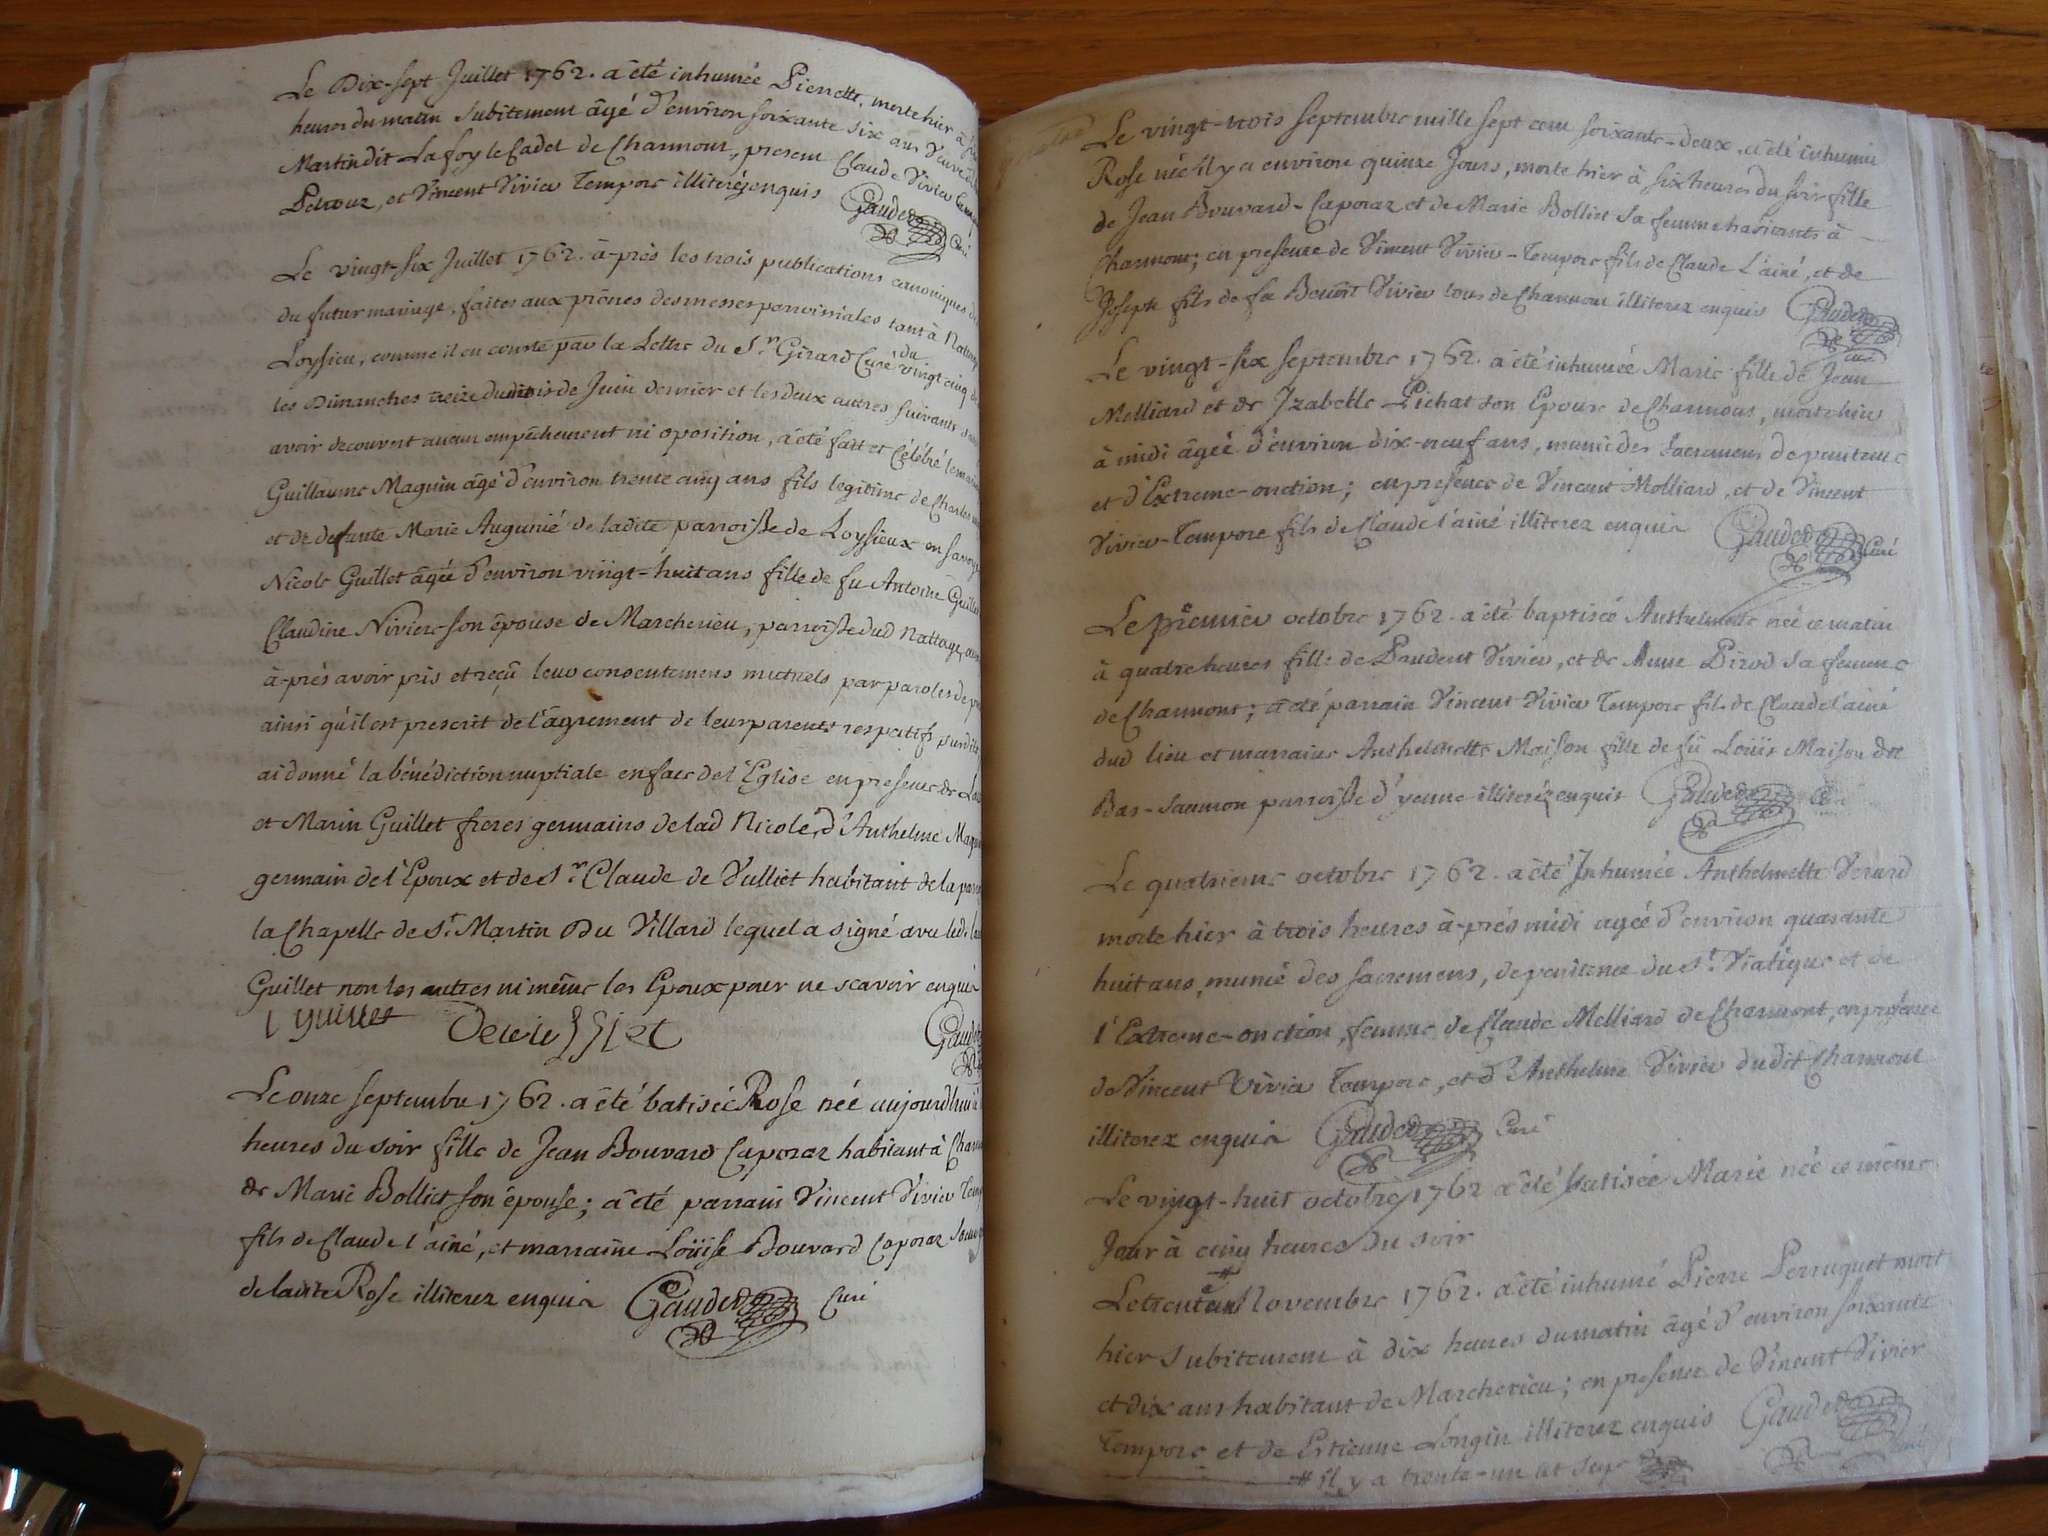 Le Dix-sept Juillet 1762. a été inhumée Pierrette, morte hier à
heures du matin subitement âgé d'environ soixante six ans veuve
Martin dit La foy le Cadet de Channont, present Claude Vivier
et Vincent Vivier Tempore illiterés enquis Gaudet Curé
Le vingt-six Juillet 1762. à-près les trois publications canoniques
du futur mariage, faites aux prônes des messes parroissiales tant à Nattage
Loysieu, comme il en conste par la Lettre du Sr. Girard Curé du vingt cinq
les Dimanches treize du mois de Juin dernier et les deux autres suivants
avoir decouvert aucun empêchement ni oposition, a été fait et célébré le
Guillaume Maguin âgé d'environ trente cinq ans fils legitime de Charles
et de defunte Marie Augunié de ladite parroisse de Loysieux en savoye
Nicole Guillet âgée d'environ vingt-huit ans fille de fu Antoine Guillet
Claudine Niviere son épouse de Marcherieu, parroisse dud Nattage,
à-près avoir pris et reçû leur consentemens mutuels par paroles de
ainsi qu'il est prescrit de l'âgrement de leur parents respatifs
ai donné la bénédiction nuptiale en face de l'Eglise en presence de
et Marin Guillet freres germains de lad Nicole, d'Anthelme
germain de l'Epoux et de Sr. Claude de Vulliet habitant de la
la Chapelle de St. Martin Du Villard lequel a signé avec led.
Guillet non les autres ni même les Epoux pour ne scavoir enquis
l guillet Gaudet
Le onze septembre 1762. a été batisée Rose née aujourdhui à
heures du soir fille de Jean Bouvard Caporaz habitant à
de Marie Bolliet son épouse; a été parrain Vincent Vivier
fils de Claude l'ainé, et marraine Loüise Bouvard Caporaz
de ladite Rose illiterez enquis Gaudet Curé
Le vingt-trois septembre mille sept cent soixante-deux, a été inhumée
Rose née il y a environ quinze Jours, morte hier à six heures du soir fille
de Jean Bouvard-Caporaz et de Marie Bolliet sa femme habitants à
Channont; en presence de Vincent Vivier-Tempore fils de Claude L'ainé, et de
Joseph fils de fu Benoit Vivier tous de Channont illiterez enquis Gaudet
curé
Le vingt-six septembre 1762. a été inhumée Marie fille de Jean
Melliard et de Izabelle Pichat son Epouse de Channont, morte hier
à midi âgée d'environ dix-neuf ans, munie des sacremens de penitence
et d'Extreme-onction; en présence de Vincent Molliard, et de Vincent
Vivier-Tempore fils de Claude l'ainé illiterez enquis Gaudet Curé
Le premier octobre 1762. a été baptisée Anthelmette née ce matin
à quatre heures fille de Prudent Vivier, et de Anne Pirod sa femme
de Channont; a été parrain Vincent Vivier Tempore fils de Claude l'ainé
dud lieu et marraine Anthelmette Maison fille de fû Loüis Maison de
Bas-Saumon parroisse d'yenne illiterés enquis Gaudet Curé
Le quatrieme octobre 1762. a été Inhumée Anthelmette Verard
morte hier à trois heures à-près midi agée d'environ quarante
huit ans, munie des sacremens, de penitence du St. Viatique et de
l'Extreme-onction, femme de Claude Melliard de Channont, en présence
de Vincent Vivier Tempore, et d'Anthelme Vivier dudit Channont
illiterez enquis Gaudet Curé
Le vingt-huit octobre 1762 a été batisée Marie née ce même
Jour à cinq heures du soir
Le trente un Novembre 1762. a été inhumé Pierre Perruquet mort
hier subitement à dix heures du matin âgé d'environ soixante
et dix ans habitant de Marcherieu; en presence de Vincent Vivier
Tempore et de Estienne Longin illiterez enquis Gaudet
# il y a trente-un